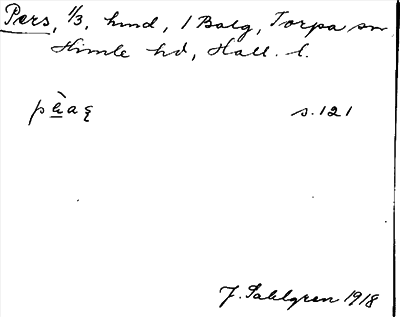 Pers, 1/3, hmd, 1 Balg, Torpa sn
Himle hd, Hall. l.
s. 121
J. Sahlgren 1918